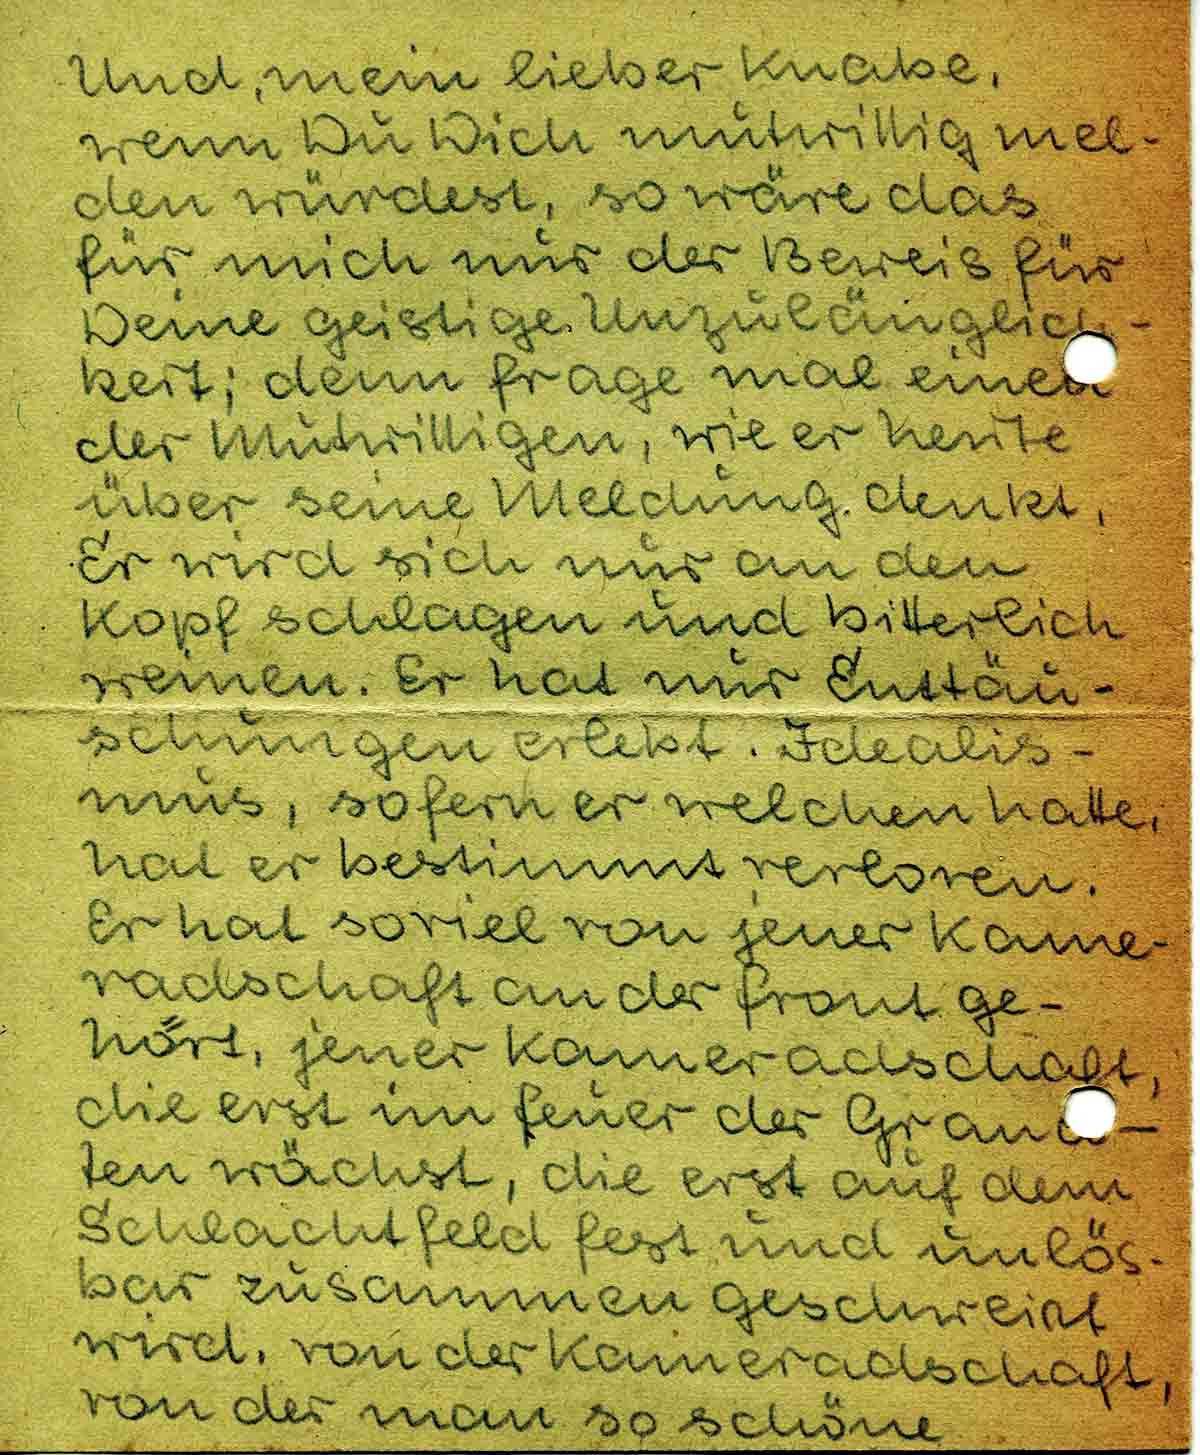 Und, mein lieber Knabe,
wenn Du Dich mutwillig mel-
den würdest, so wäre das
für mich nur der Beweis für
Deine geistige Unzulänglich-
keit; denn frage mal einen
der Mutwilligen, wie er heute
über seine Meldung denkt,
Er wird sich nur an den
Kopf schlagen und bitterlich
weinen. Er hat nur Enttäu-
schungen erlebt. Idealis-
mus, sofern er welchen hatte,
hat er bestimmt verloren.
Er hat soviel von jener Kame-
radschaft an der Front ge-
hört, jener Kameradschaft,
die erst im Feuer der Grana-
ten wächst, die erst auf dem
Schlachtfeld fest und unlös-
bar zusammen geschweißt
wird, von der Kameradschaft,
von der man so schöne